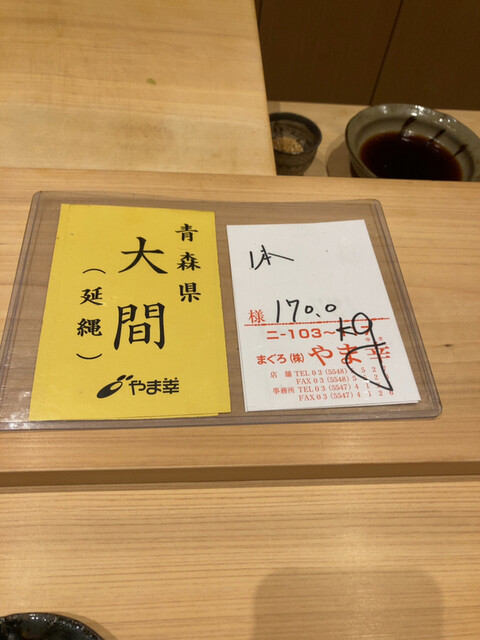 青森県
大間
(延縄)
やま幸
1本
様 170.0
kg
ニ-103~
まぐろ(株)やま幸
店舗 TEL 03(5548)
FAX 03(5548)
事務所 TEL 03(5547)
FAX 03(5547)